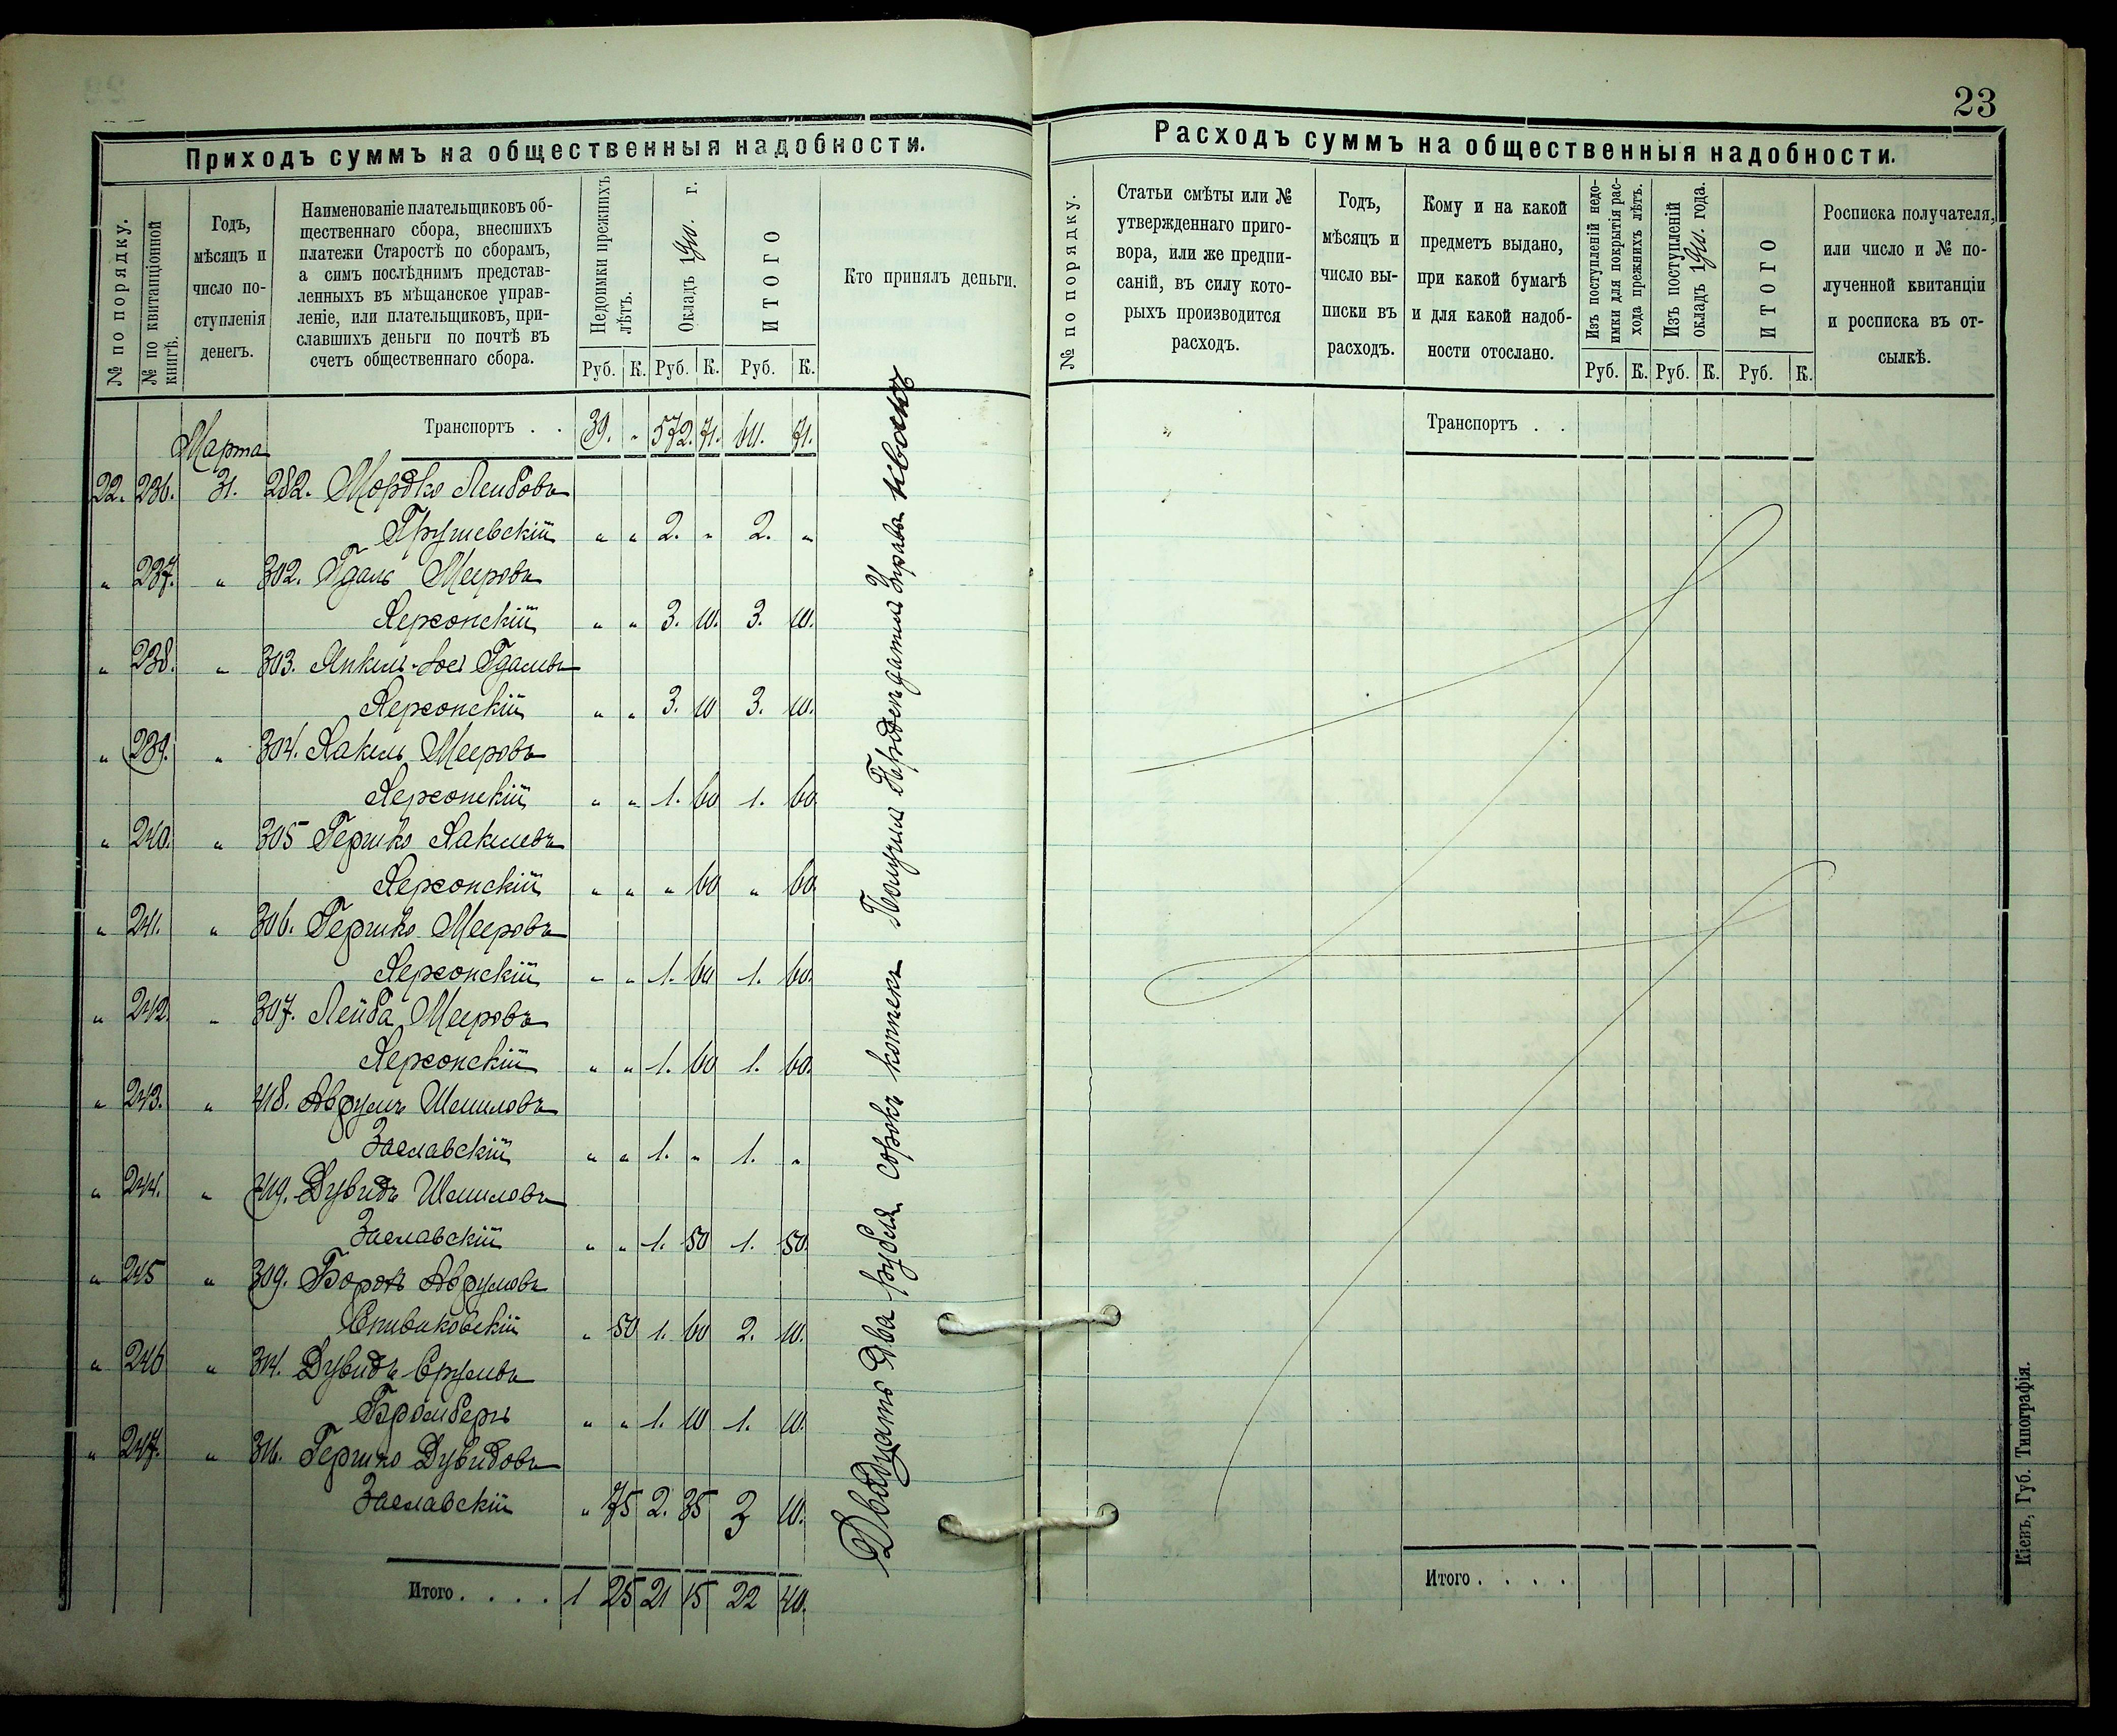 23
Приходъ суммъ на общественныя надобности.
№ по порядку.
№ по квитанціонной книгѣ.
Годъ,
мѣсяцъ и
число по-
ступленія
денегъ.
Наименованіе плательщиковъ об-
щественнаго сбора, внесшихъ
платежи Старостѣ по сборамъ,
а симъ послѣднимъ представ-
ленныхъ въ мѣщанское управ-
леніе, или плательщиковъ, при-
славшихъ деньги по почтѣ въ
счетъ общественнаго сбора.
Недоимки прежнихъ
лѣтъ.
Окладъ 1900. г.
ИТОГО
Кто принялъ деньги.
Руб. К. Руб. К. Руб. К.
Транспортъ . . 39. „ 572. 71. 611. 71.
Марта
22. 236. 31. 282. Мордко Лейбовъ
Грушевскій „ „ 2. „ 2. „
„ 237. „ 302. Гдаль Мееровъ
Херсонскій „ „ 3. 10. 3. 10.
„ 238. „ 303. Янкель-Іос Гдалевъ
Херсонскій „ „ 3. 10 3. 10.
„ 239. „ 304. Хакель Мееровъ
Херсонскій „ „ 1. 60 1. 60
„ 240. „ 305 Гершко Хакелевъ
Херсонскій „ „ „ 60 „ 60
„ 241. „ 306. Гершко Мееровъ
Херсонскій „ „ 1. 60 1. 60.
„ 242. „ 307. Лейба Мееровъ
Херсонскій „ „ 1. 60 1. 60.
„ 243. „ 418. Аврумъ Шмиловъ
Заславскій „ „ 1. „ 1. „
„ 244. „ 419. Дувидъ Шмиловъ
Заславскій „ „ 1. 50 1. 50.
„ 245 „ 309. Борохъ Аврумовъ
Спиваковскій „ 50 1. 60 2. 10.
„ 246 „ 314. Дувидъ Срулевъ
Бромбергъ „ „ 1. 10 1. 10.
„ 247. „ 316. Гершко Дувидовъ
Заславскій „ 75 2. 35 3 10.
Итого . . . . 1 25 21 15 22 40.
Двадцать два рубля сорокъ копѣекъ Получилъ Управы
Расходъ суммъ на общественныя надобности.
№ по порядку.
Статьи смѣты или №
утвержденнаго приго-
вора, или же предпи-
саній, въ силу кото-
рыхъ производится
расходъ.
Годъ,
мѣсяцъ и
число вы-
писки въ
расходъ.
Кому и на какой
предметъ выдано,
при какой бумагѣ
и для какой надоб-
ности отослано.
Изъ поступленій недо-
имки для покрытія рас-
хода прежнихъ лѣтъ.
Изъ поступленій
окладъ 1900. года.
ИТОГО
Росписка получателя,
или число и № по-
лученной квитанціи
и росписка въ от-
сылкѣ.
Руб. К. Руб. К. Руб. К.
Транспортъ . .
Итого . . . .
Кіевъ, Губ. Типографія.